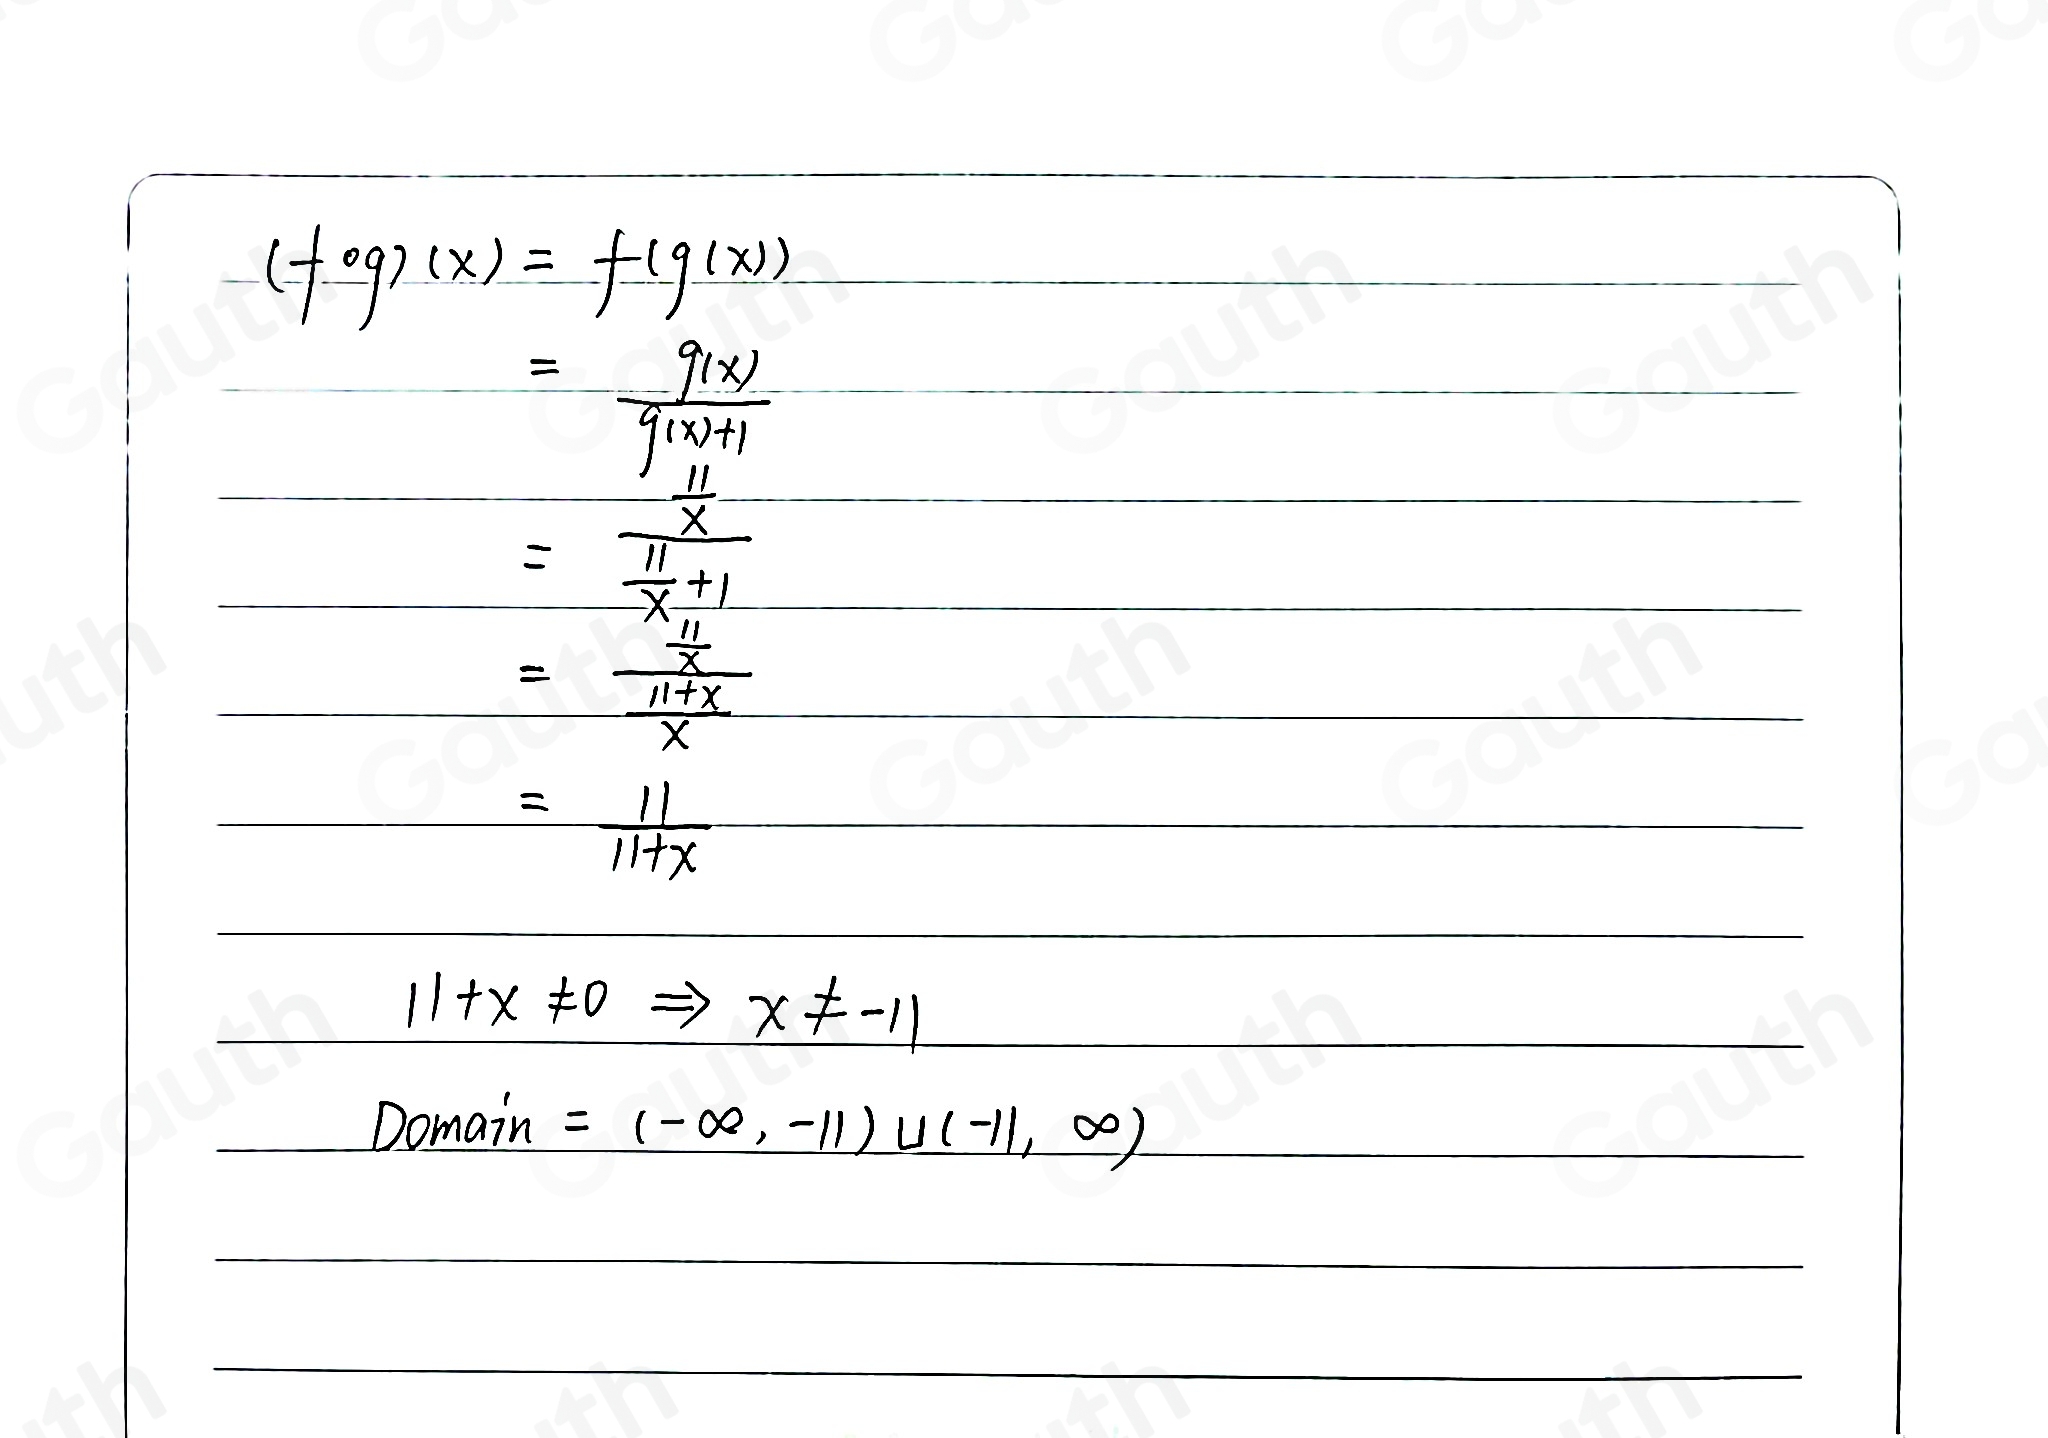 (f∘g)(x) = f(g(x))
= g(x) / g(x)+1
= 11/x / 11/x +1
= 11/x / 11+x/x
= 11 / 11+x
11+x ≠0 ⇒ x ≠ -11
Domain = (-∞, -11) ∪ (-11, ∞)